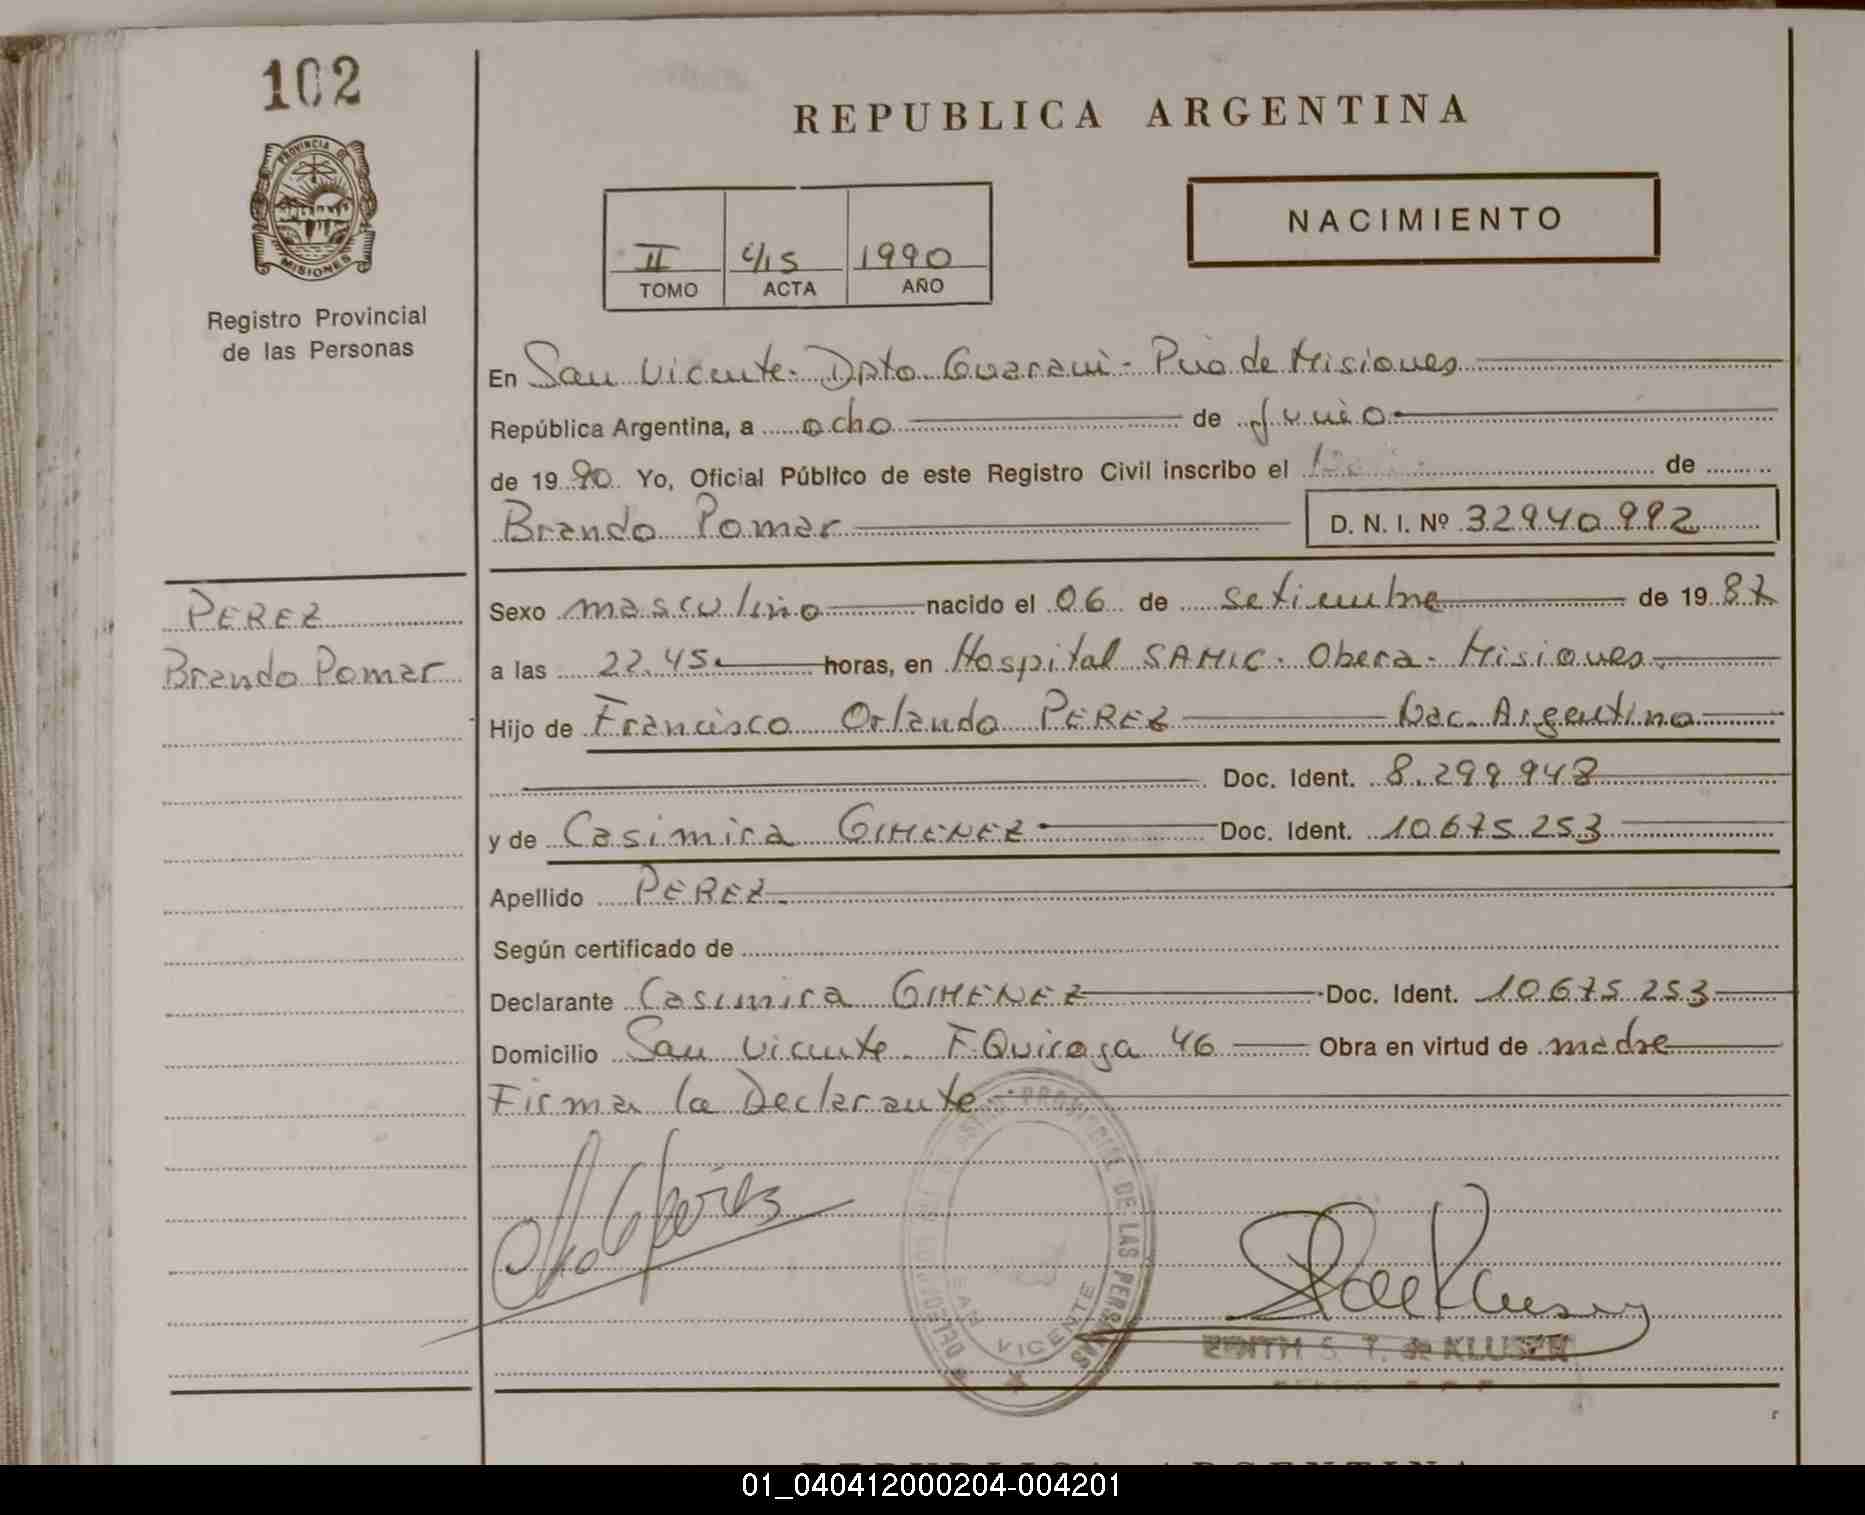 102
PROVINCIA DE
MISIONES
Registro Provincial
de las Personas
REPUBLICA ARGENTINA
NACIMIENTO
II 415 1990
TOMO ACTA AÑO
En San Vicente - Dpto. Guaraní - Pcia de Misiones
República Argentina, a ocho de Junio
de 1990 Yo, Oficial Público de este Registro Civil inscribo el de
Brando Pomar D. N. I. Nº 32940992
PEREZ
Brando Pomar
Sexo masculino nacido el 06 de setiembre de 1987
a las 22.45. horas, en Hospital SAMIC. Obera - Misiones.
Hijo de Francisco Orlando PEREZ Nac. Argentino
Doc. Ident. 8.299.948
y de Casimira GIMENEZ Doc. Ident. 10675253
Apellido PEREZ
Según certificado de
Declarante Casimira GIMENEZ Doc. Ident. 10675253
Domicilio San Vicente. F. Quiroga 46 Obra en virtud de madre
Firma la Declarante
PROVINCIAL DE LAS PERSONAS
VICENTE
S. T. de KLUSEN
REPUBLICA ARGENTINA
01_040412000204-004201